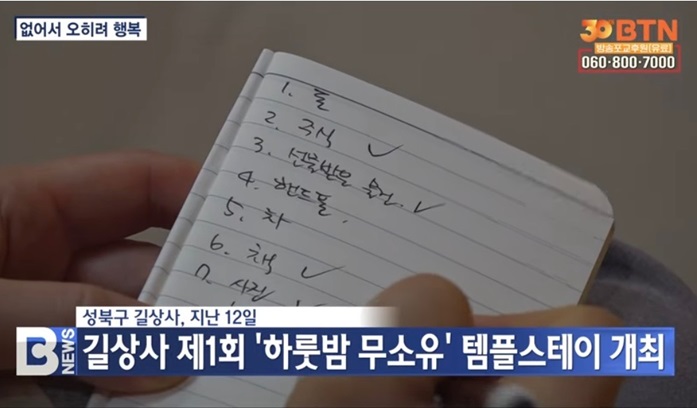 없어서 오히려 행복
30 BTN
방송포교후원[유료]
060·800·7000
1. 돌
2. 주식 ✓
3. 선물받은 물건. ✓
4. 핸드폰.
5. 차
6. 책 ✓
7. 사진
성북구 길상사, 지난 12일
B NEWS
길상사 제1회 '하룻밤 무소유' 템플스테이 개최